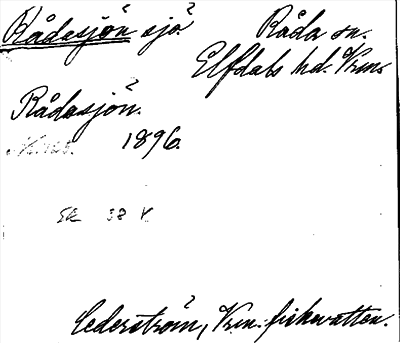 Rådasjön sjö
Råda sn.
Elfdals hd. Vrm.
Rådasjön.
1896.
SK 38 V
Cederström, Vrm. fiskevatten.